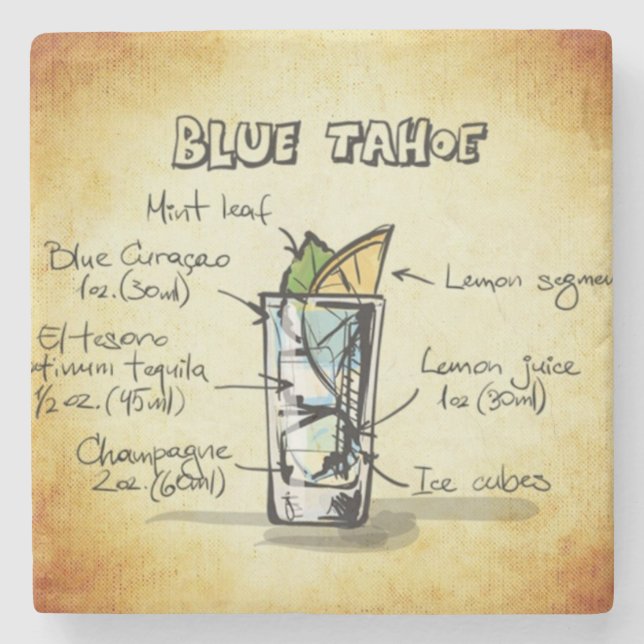 BLUE TAHOE
Mint leaf
Blue Curaçao
1oz.(30ml)
Lemon segmen
El tesoro
tinum tequila
1/2 oz.(45ml)
Lemon juice
1oz(30ml)
Champagne
2oz.(60ml)
Ice cubes